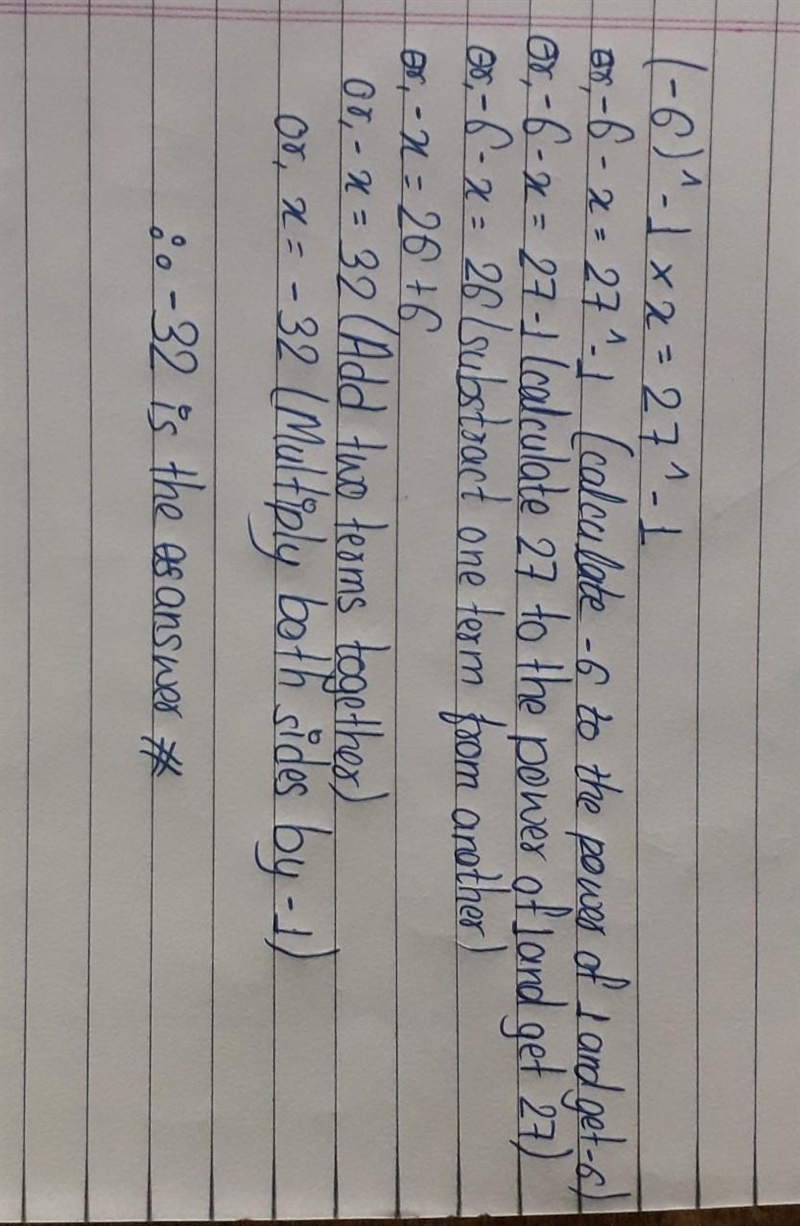 (-6)^-1 × x = 27^-1
or, -6 - x = 27^-1 (calculate -6 to the power of 1 and get -6)
or, -6 - x = 27-1 (calculate 27 to the power of 1 and get 27)
or, -6 - x = 26 (substract one term from another)
or, - x = 26 + 6
or, - x = 32 (Add two terms together)
or, x = - 32 (Multiply both sides by -1)
∴ -32 is the answer #